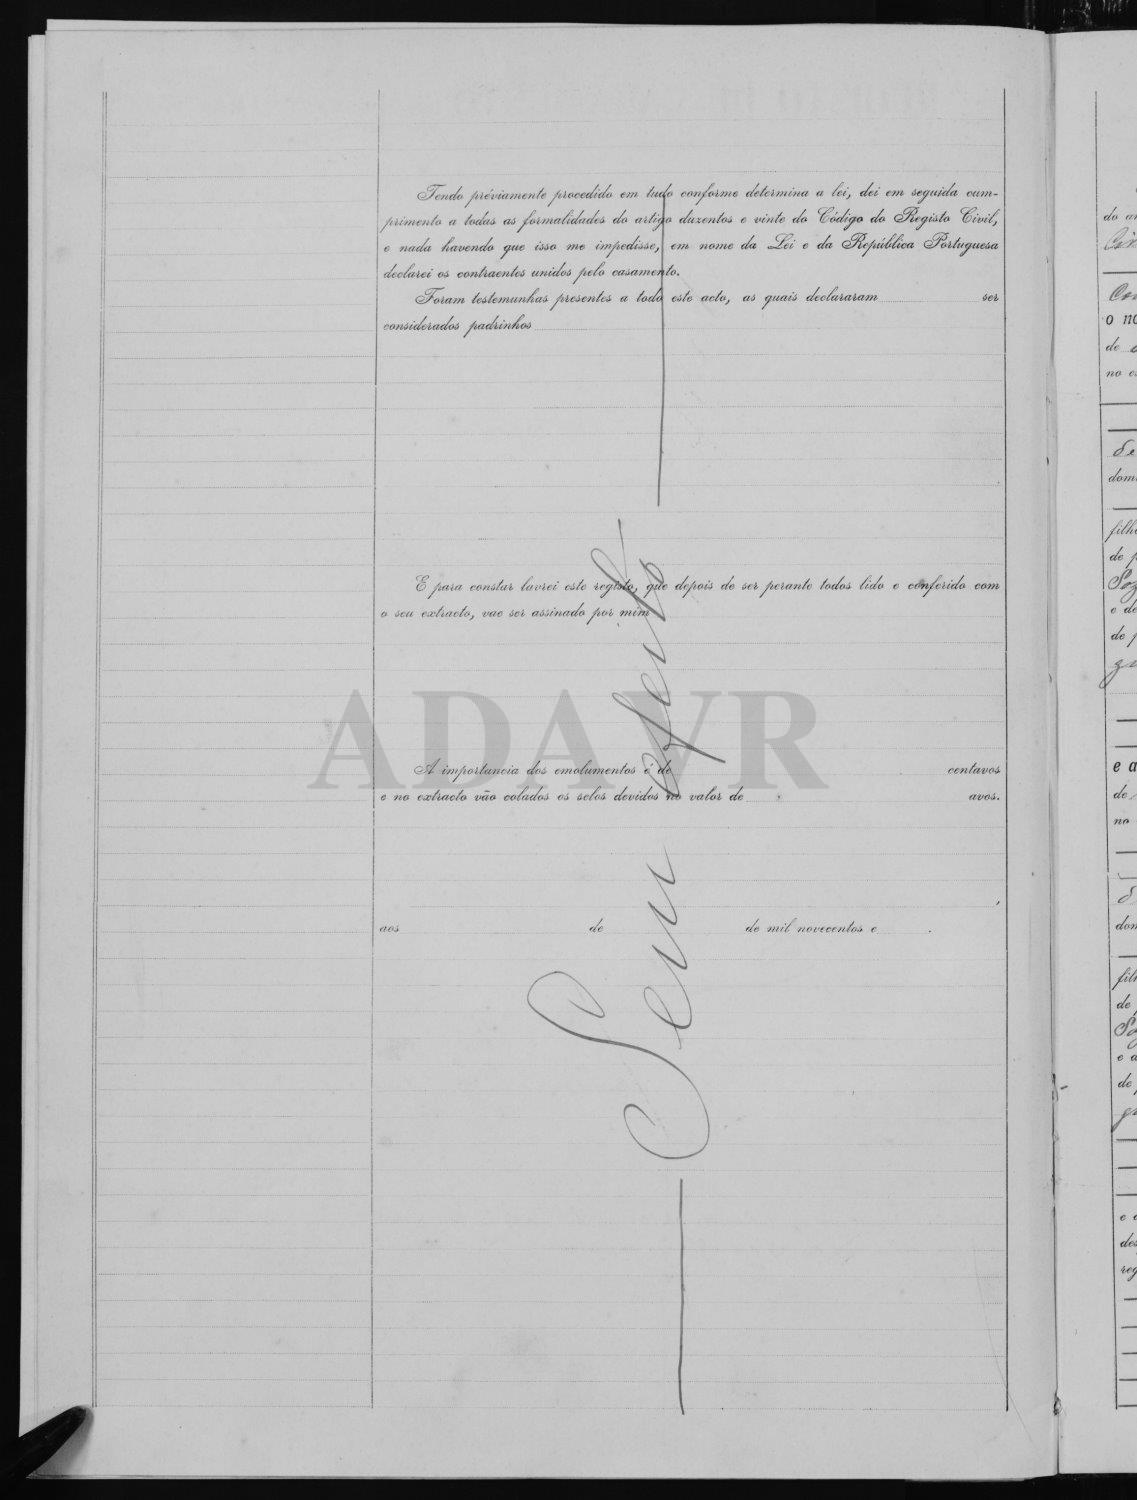 Tendo préviamente procedido em tudo conforme determina a lei, dei em seguida cum-
primento a todas as formalidades do artigo duzentos e vinte do Código do Registo Civil,
e nada havendo que isso me impedisse, em nome da Lei e da República Portuguesa
declarei os contraentes unidos pelo casamento.
Foram testemunhas presentes a todo este acto, as quais declararam ser
considerados padrinhos
E para constar lavrei este registo, que depois de ser perante todos lido e conferido com
o seu extracto, vae ser assinado por mim
ADAVR
A importancia dos emolumentos é de centavos
e no extracto vão colados os selos devidos no valor de avos.
,
aos de de mil novecentos e .
Sem efeito
do
o no
de
no
dom
filh
de
e de
de
e a
de
no
dom
filh
de
e a
de
e
des
reg